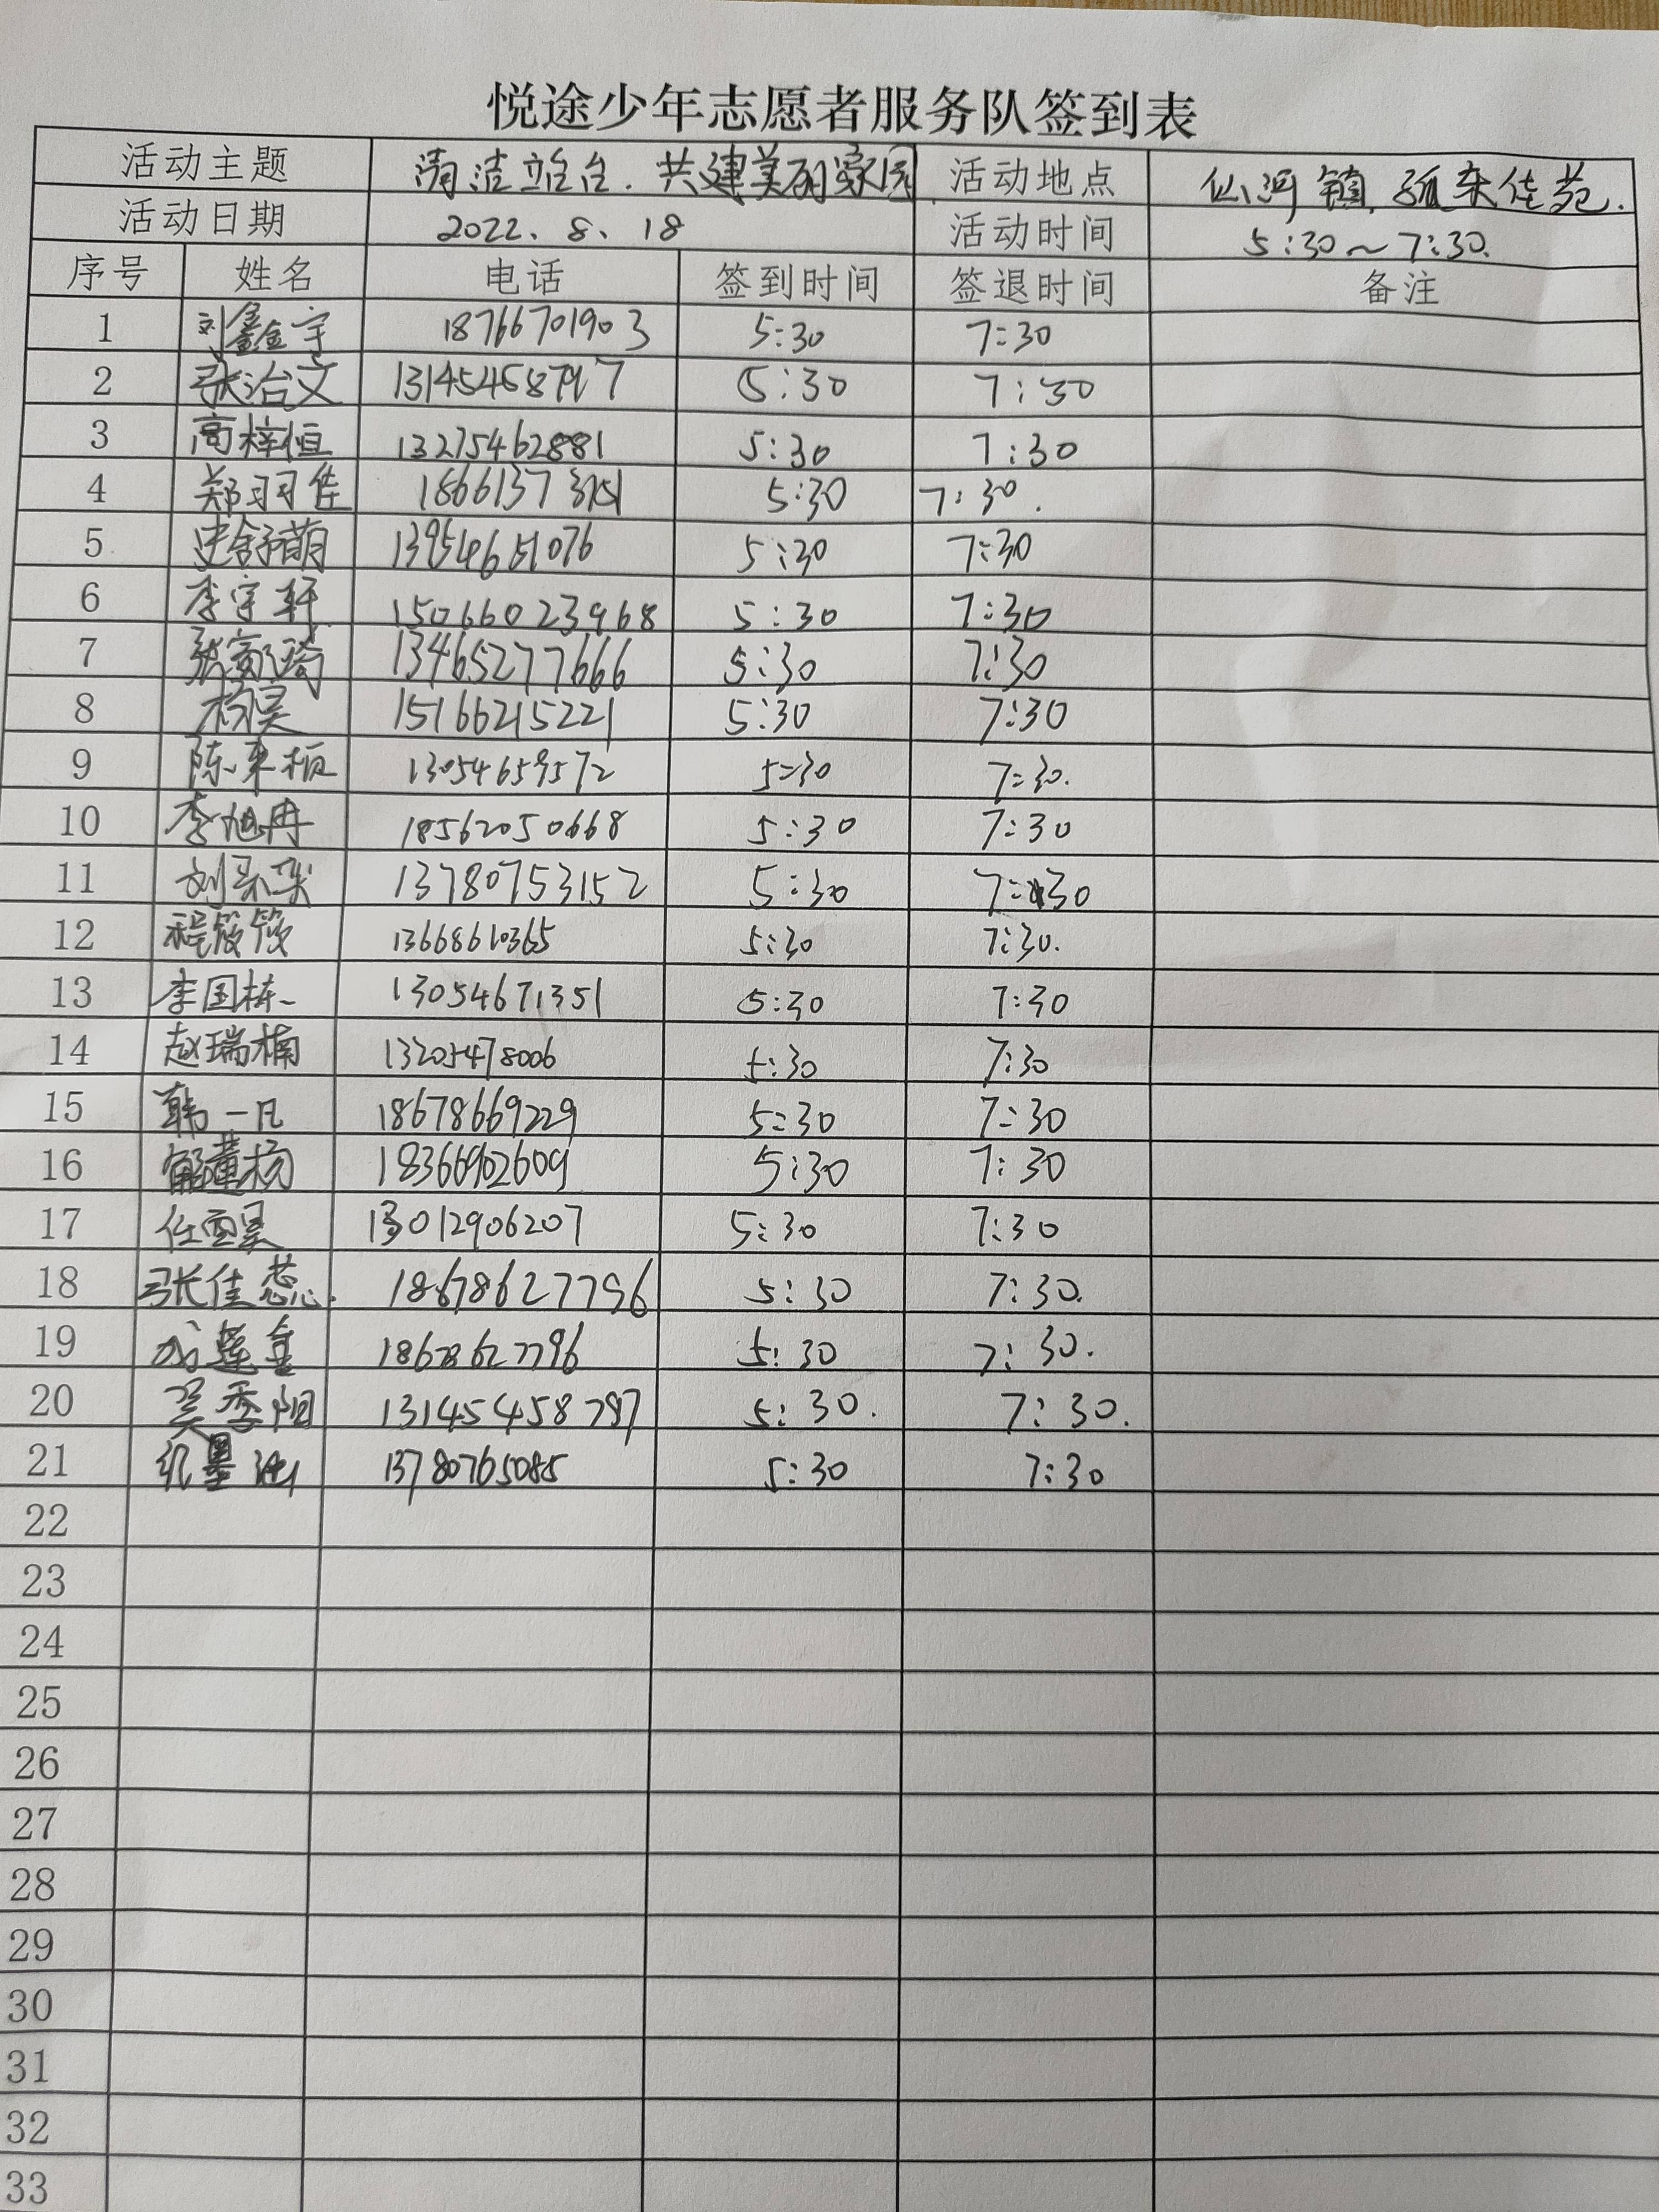 悦途少年志愿者服务队签到表
活动主题 清洁站台.共建美丽家园 活动地点 仙河镇.孤东佳苑.
活动日期 2022、8、18 活动时间 5:30～7:30.
序号 姓名 电话 签到时间 签退时间 备注
1 刘鑫宇 18766701903 5:30 7:30
2 张治文 5:30 7:30
3 高梓恒 13275462881 5:30 7:30
4 郑羽佳 5:30 7:30.
5 史舒萌 13954651076 5:30 7:30
6 李宇轩 15066023968 5:30 7:30
7 13465277666 5:30 7:30
8 杨昊 15166215221 5:30 7:30
9 13054659572 5:30 7:30.
10 李旭冉 18562050668 5:30 7:30
11 13780753152 5:30 7:30
12 程筱筱 13668610365 5:30 7:30.
13 李国栋 13054671351 5:30 7:30
14 赵瑞楠 13205478006 5:30 7:30
15 韩一凡 18678669229 5:30 7:30
16 18366902609 5:30 7:30
17 13012906207 5:30 7:30
18 张佳蕊. 18678627796 5:30 7:30.
19 18678627796 5:30 7:30.
20 吴季阳 5:30. 7:30.
21 13780765085 5:30 7:30
22
23
24
25
26
27
28
29
30
31
32
33